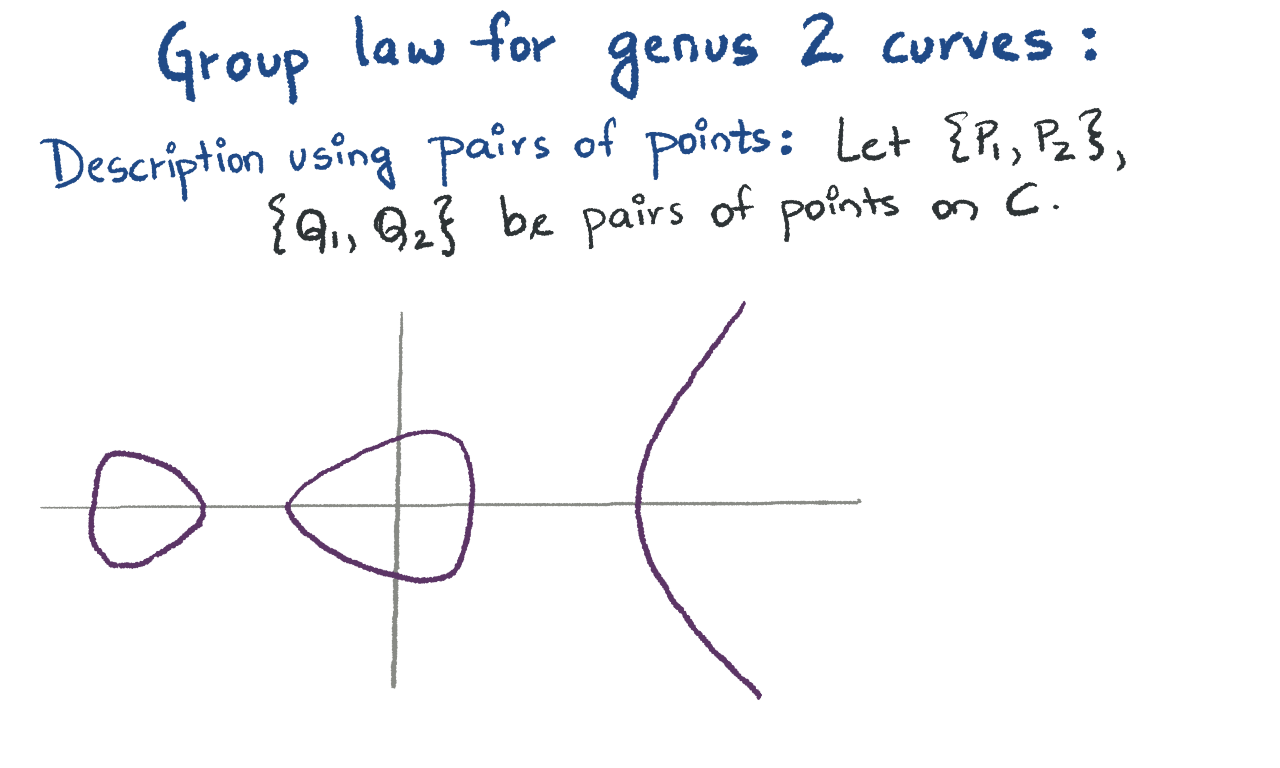 Group law for genus 2 curves:
Description using pairs of points: Let {P₁, P₂},
{Q₁, Q₂} be pairs of points on C.